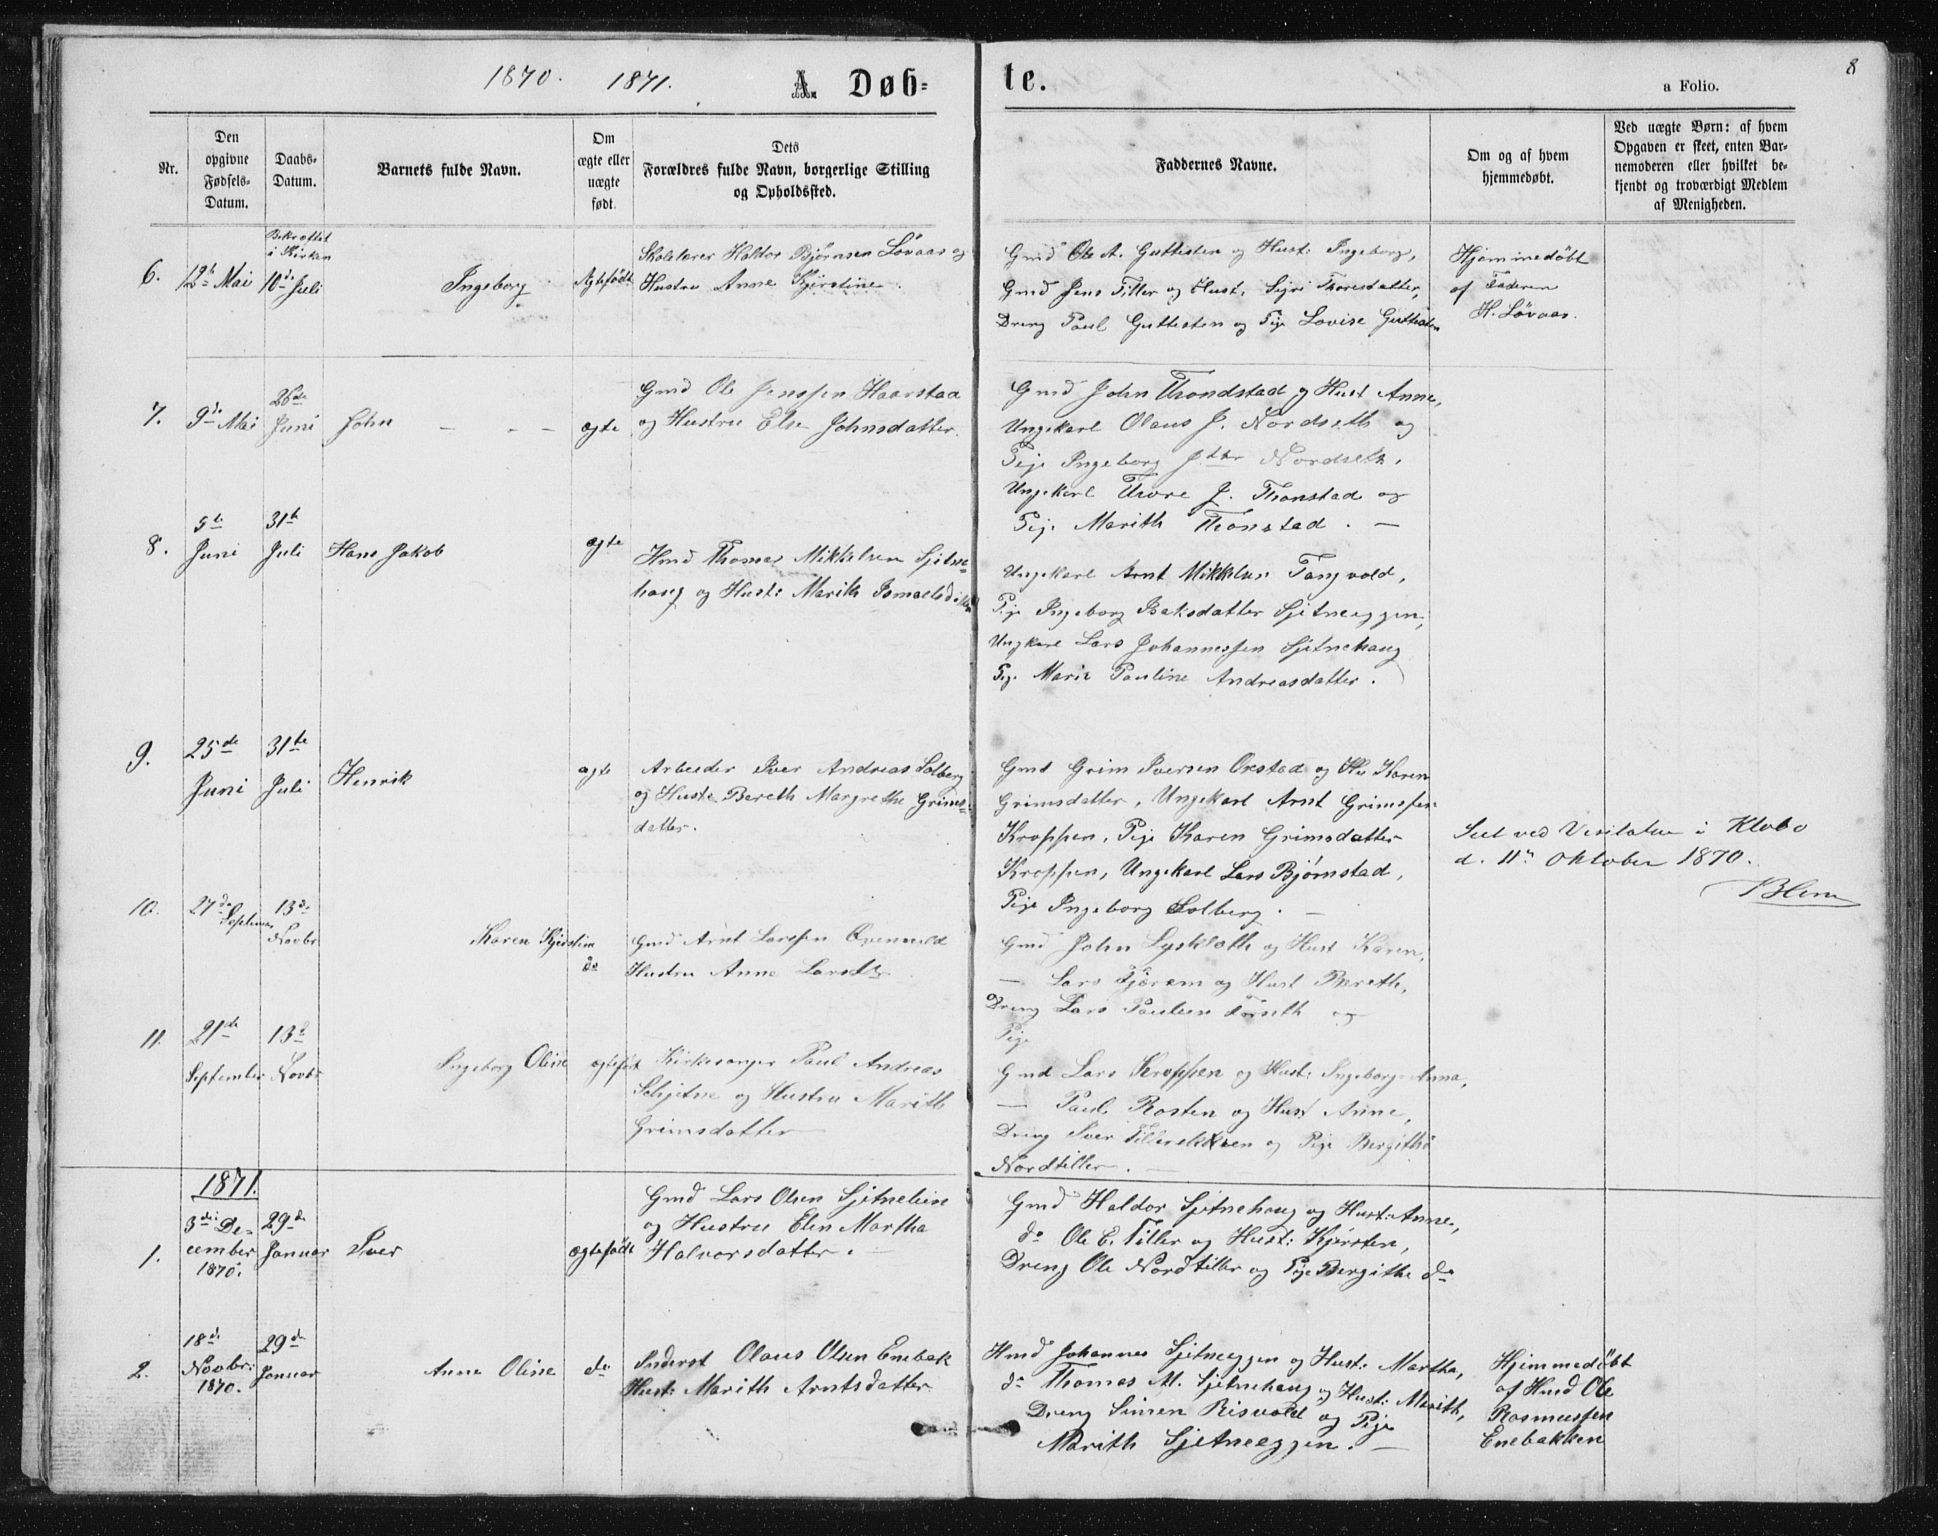 1870. 1871. A. Døbte. 8
a Folio.
Nr.
Den opgivne Fødsels-Datum.
Daabs-Datum.
Barnets fulde Navn.
Om ægte eller uægte født.
Dets Forældres fulde Navn, borgerlige Stilling og Opholdssted.
Faddernes Navne.
Om og af hvem hjemmedøbt.
Ved uægte Børn: af hvem Opgaven er skeet, enten Barnemoderen eller hvilket bekjendt og troværdigt Medlem af Menigheden.
6.
12te Mai
Bekræftet i Kirken
10de Juli
Ingeborg
Ægtefødt
Skolelærer Haldor Bjørnsen Løvaas og
Hustru Anne Kjerstine
Gmd Ole A. Guttesten og Hust: Ingeborg,
Gmd Jens Tiller og Hust: Sigri Thoresdatter,
Dreng Paul Guttesten og Pige Lovise Guttesten
Hjemmedøbt
af Faderen
H. Løvaas.
7.
9de Mai
26de Juni
John
ægte
Gmd Ole Jenssen Haarstad
og Hustru Else Johnsdatter.
Gmd John Thonstad og Hust Anne,
Ungekarl Olaus J. Nordseth og
Pige Ingeborg Jdtr Nordseth,
Ungekarl Thore J. Thonstad og
Pige Marith Thonstad. —
8.
5te Juni
31te Juli
Hans Jakob
ægte
Hmd Thomas Mikkelsen Sjetne-
haug og Hust: Marith Ismaelsdtter
Ungekarl Arnt Mikkelsen Tangvold,
Pige Ingeborg Isaksdatter Sjetneeggen,
Ungkarl Lars Johannessen Sjetnehaug
Pige Marie Pauline Andreasdatter.
9.
25de Juni
31te Juli
Henrik
ægte
Arbeider Iver Andreas Solberg
og Hustr Bereth Margrethe Grims-
datter.
Gmd Grim Iversen Orstad og Hu Karen
Grimsdatter, Ungekarl Arnt Grimssen
Kroppen, Pige Karen Grimsdatter
Kroppen, Ungekarl Lars Bjørnstad,
Pige Ingeborg Solberg. —
Seet ved Visitatsen i Klebo
d. 11te Oktober 1870.
10.
27de September
13de Novbr
Karen Kjerstine
do
Gmd Arnt Larssen Qvenild
Hustru Anne Larsdtr
Gmd John Lysklæth og Hust Karen,
— Lars Tjærem og Hust Bereth,
Dreng Lars Paulsen og
Pige
11.
21de September
13de Novbr
Ingeborg Oline
ægtefødt
Kirkesanger Paul Andreas
Schjetne og Hustru Marith
Grimsdatter
Gmd Lars Kroppen og Hust: Ingeborg Anna,
— Paul Rosten og Hust Anne,
Dreng Iver og Pige Bergithe
Nordtiller. —
1871.
1.
3die December 1870.
29de Januar
Iver
ægtefødt
Gmd Lars Olsen Sjetnelein
og Hustru Elen Martha
Halvorsdatter. —
Gmd Haldor Sjetnehaug og Hust: Anne,
do Ole E. Tiller og Hust: Kjersten,
Dreng Ole Nordtiller og Pige Bergithe do
2.
18de Novbr: 1870.
29de Januar
Anne Oline
do
Inderst Olaus Olsen Enebak
Hust: Marith Arntsdatter
Hmd Johannes Sjetneeggen og Hust: Martha,
do Thomas M. Sjetnehaug og Hust: Marith,
Dreng Simen Risvold og Pige
Marith Sjetneeggen. —
Hjemmedøbt
af Hmd Ole
Rasmussen
Enebakken